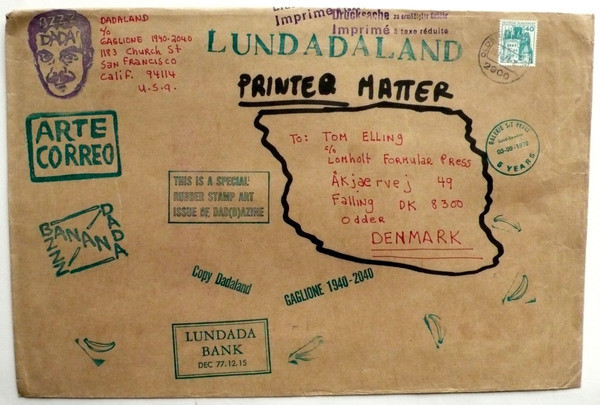 ZZZZ
DADA
DADALAND
c/o
GAGLIONE 1940-2040
1183 Church St
SAN FRANCISCO
Calif. 94114
U.S.A.
Imprimé
Drücksache zu ermäßigter Gebühr
Imprimé à taxe réduite
LUNDADALAND
40
2900
PRINTED MATTER
ARTE
CORREO
To: TOM ELLING
c/o
Lomholt Formular Press
Åkjærvej 49
Falling DK 8300
Odder
DENMARK
5 YEARS
THIS IS A SPECIAL
RUBBER STAMP ART
ISSUE OF DAD(D)AZINE
DADA
BANANA
ZZZZ
Copy Dadaland
GAGLIONE 1940-2040
LUNDADA
BANK
DEC 77.12.15